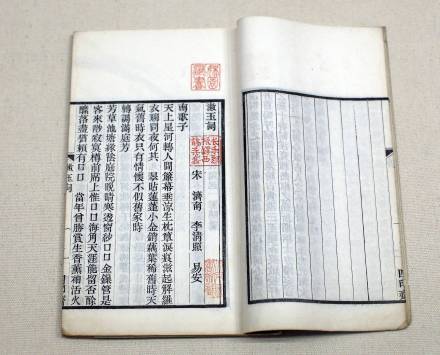 漱玉詞
宋　濟南　李淸照　易安
南歌子
天上星河轉人間簾幕垂涼生枕簟淚痕滋起解羅
衣聊問夜何其　翠貼蓮蓬小金銷藕葉稀舊時天
氣舊時衣只有情懷不似舊家時
轉調滿庭芳
芳草池塘綠陰庭院晚晴寒透窗紗口口金鏁管是
客來唦寂寞樽前席上惟口口海角天涯能留否酴
醾落盡猶賴有口口　當年曾勝賞生香薰袖活火
漱玉詞